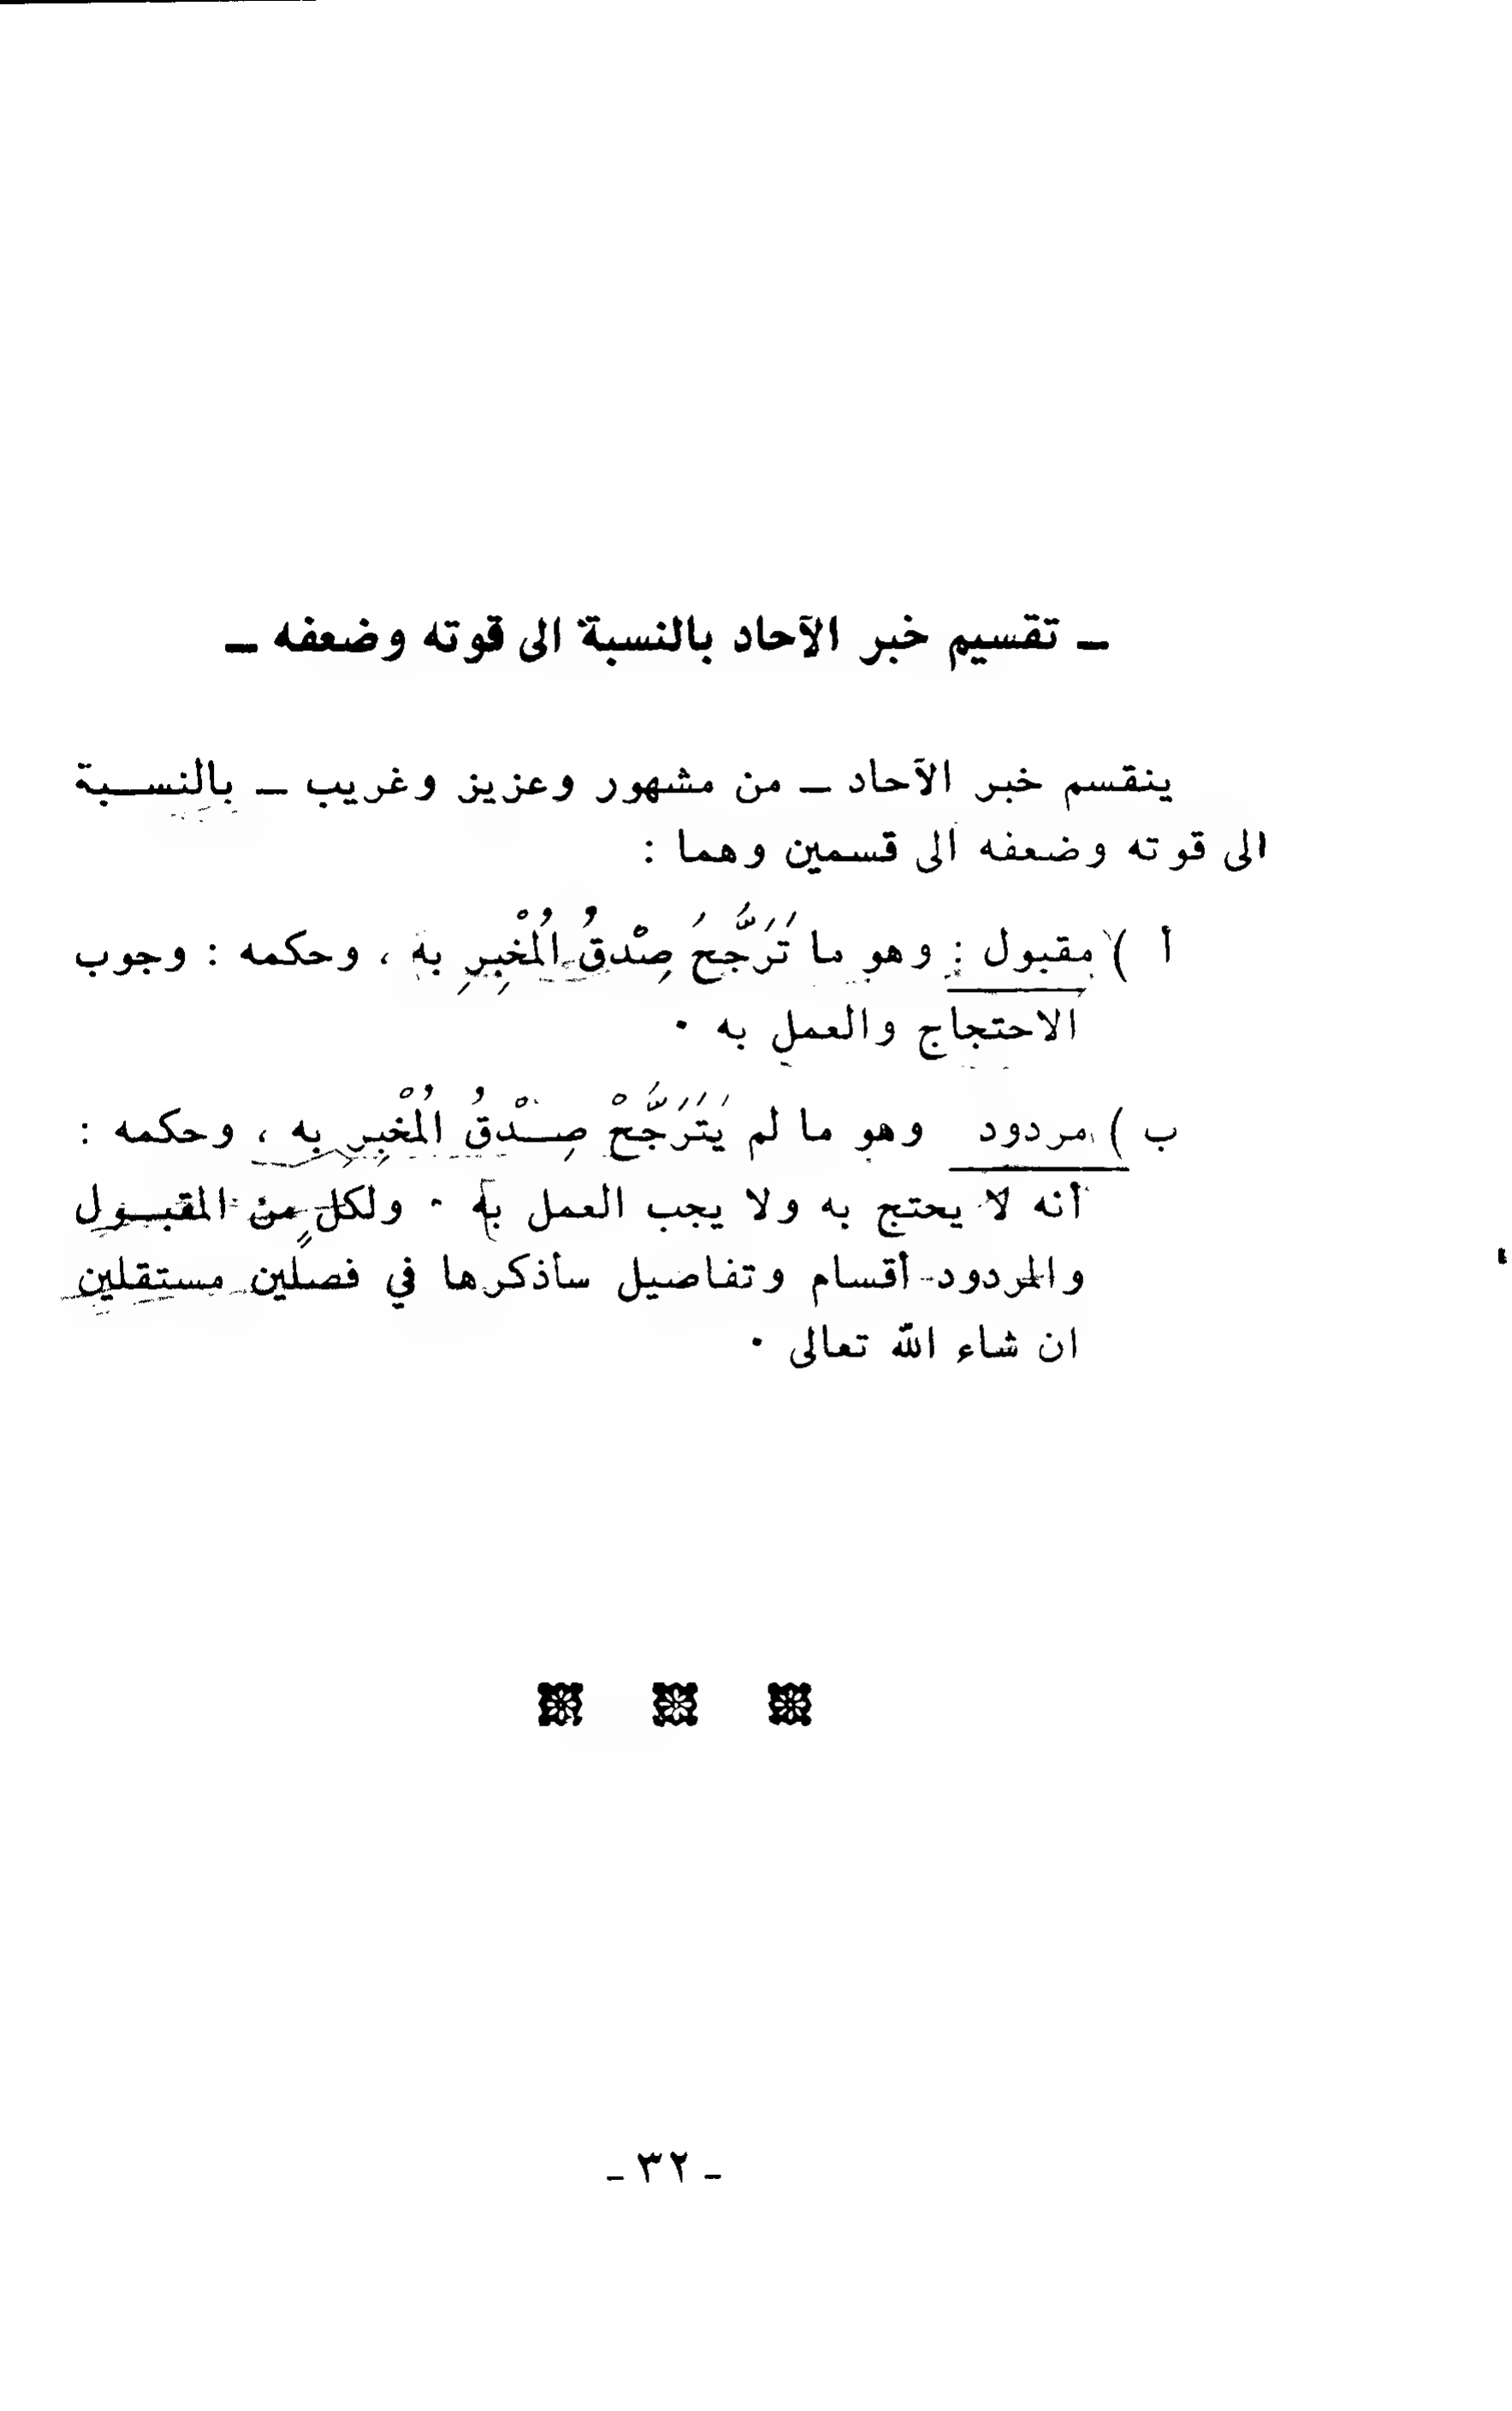 ـ تقسيم خبر الآحاد بالنسبة الى قوته وضعفه ـ
ينقسم خبر الآحاد ـ من مشهور وعزيز وغريب ـ بالنســبة
الى قوته وضعفه الى قسمين وهما :
أ ) مقبول : وهو ما تَرَجَّحَ صِدْقُ المُخْبِرِ به ، وحكمه : وجوب
الاحتجاج والعمل به ٠
ب ) مردود وهو ما لم يَتَرَجَّحْ صِــدْقُ المُخْبِرِ به ، وحكمه :
أنه لا يحتج به ولا يجب العمل به ٠ ولكلٍ من المقبــول
والمردود أقسام وتفاصيل سأذكرها في فصلين مستقلين
ان شاء الله تعالى ٠
ـ ٣٢ ـ